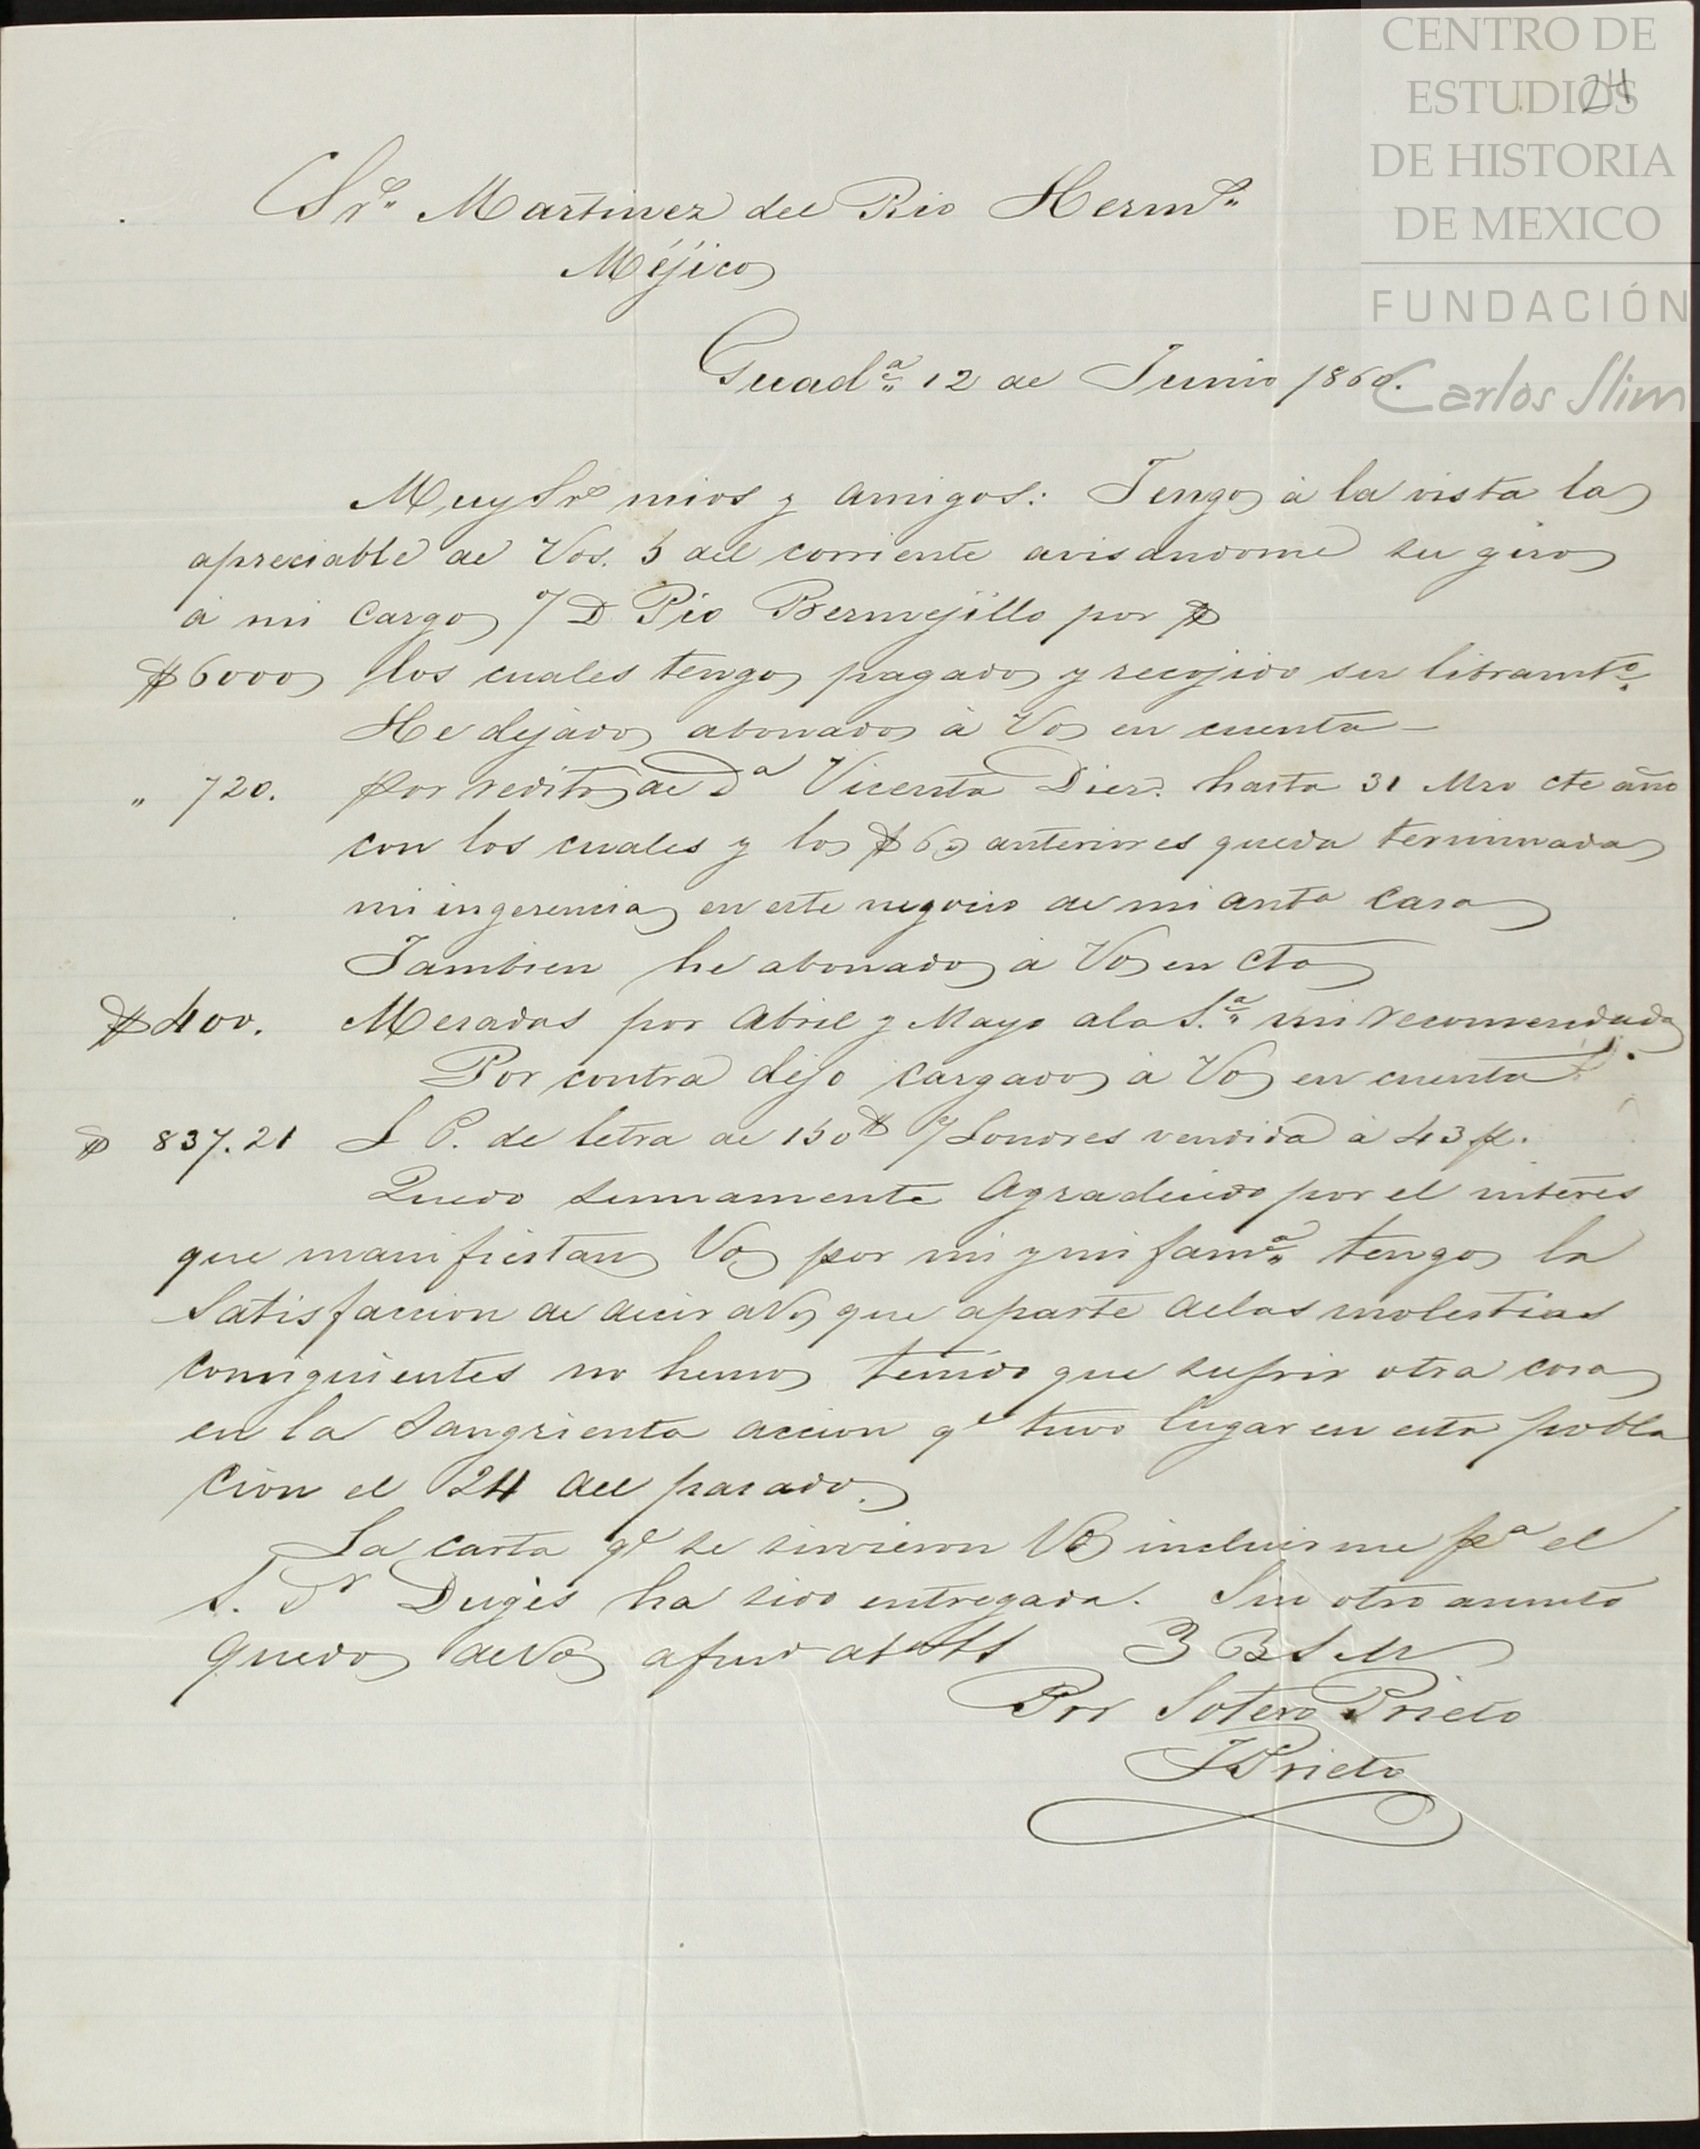 CENTRO DE
ESTUDIOS
DE HISTORIA
DE MEXICO
FUNDACIÓN
Carlos Slim
24
Sres. Martinez del Rio Herms.
Méjico
Guada. 12 de Junio 1860.
Muy Srs mios y amigos: Tengo à la vista la
apreciable de Vds. 5 del corriente avisandome su giro
à mi cargo o/ D. Pio Bermejillo por $
$6000 los cuales tengo pagado y recojido su libramto.
He dejado abonados à Vds en cuenta —
" 720. por reditos de Da Vicenta Diez. hasta 31 Mzo cte año
con los cuales y los $6@ anteriores queda terminada
mi ingerencia en este negocio de mi anta casa
Tambien he abonado à Vds en cta
$400. Mesadas por Abril y Mayo a la Sa. mi recomendada
Por contra dejo cargados à Vds en cuenta
$ 837.21 S P. de letra de 150 o/ Londres vendida à 43 p.
Quedo sumamente agradecido por el interes
que manifiestan Vds por mi y mi fama. tengo la
satisfaccion de decir a Vds que aparte de las molestias
consiguientes no hemos tenido que sufrir otra cosa
en la sangrienta accion qe tuvo lugar en esta pobla
cion el 24 del pasado.
La carta qe se sirvieron Vds incluirme pa el
S. Dr Dugès ha sido entregada. Sin otro asunto
quedo de Vds afmo at SS 2 B S M
Por Sotero Prieto
J Prieto